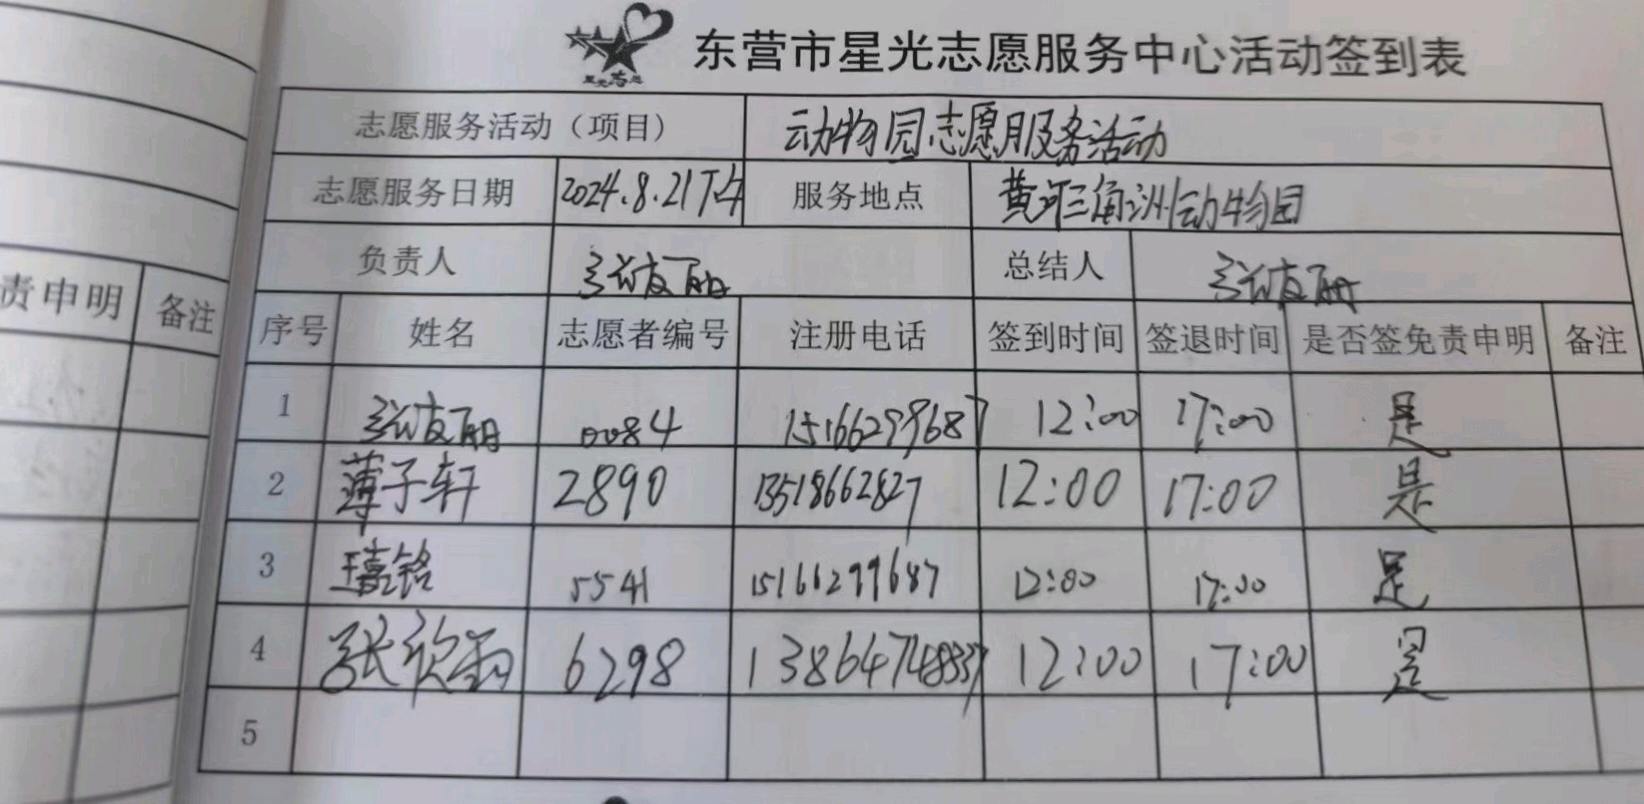 星光志愿
东营市星光志愿服务中心活动签到表
志愿服务活动（项目） 动物园志愿服务活动
志愿服务日期 2024.8.21下午 服务地点 黄河三角洲动物园
负责人 张友丽 总结人 张友丽
责申明 备注
序号 姓名 志愿者编号 注册电话 签到时间 签退时间 是否签免责申明 备注
1 张友丽 0084 15166299687 12:00 17:00 是
2 薄子轩 2890 13518662827 12:00 17:00 是
3 王嘉铭 5541 15166299687 12:00 17:00 是
4 张欣 6298 13864748337 12:00 17:00 是
5